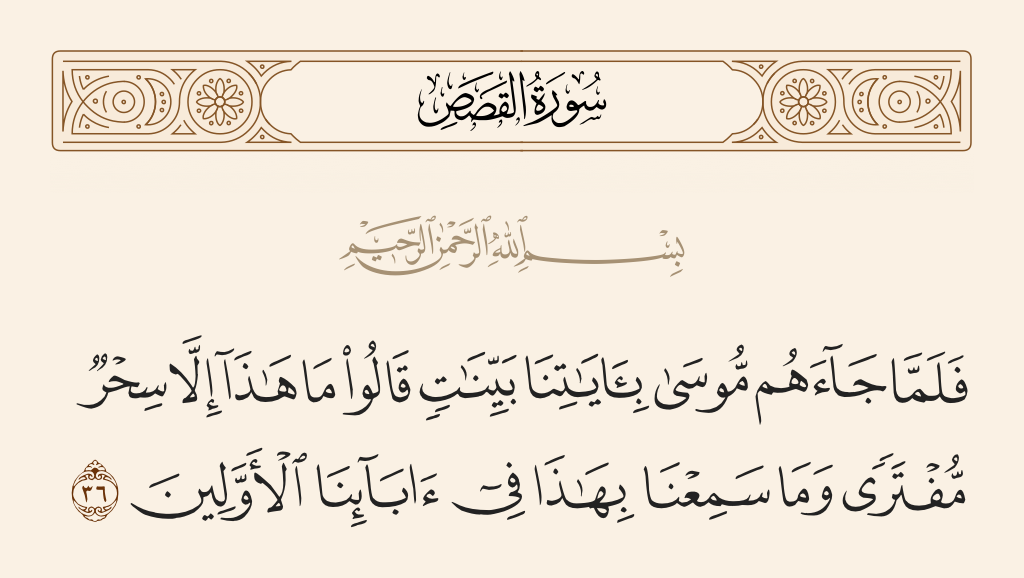 سُورَةُ القَصَصِ
بِسْمِ ٱللَّهِ ٱلرَّحْمَٰنِ ٱلرَّحِيمِ
فَلَمَّا جَآءَهُم مُّوسَىٰ بِـَٔايَـٰتِنَا بَيِّنَـٰتٍ قَالُوا۟ مَا هَـٰذَآ إِلَّا سِحْرٌ
مُّفْتَرًى وَمَا سَمِعْنَا بِهَـٰذَا فِىٓ ءَابَآئِنَا ٱلْأَوَّلِينَ ٣٦